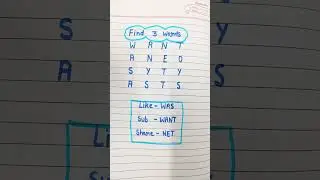 Find 3 words
W A N T
A N E O
S Y T Y
A S T S
Like - WAS
Sub - WANT
Share - NET